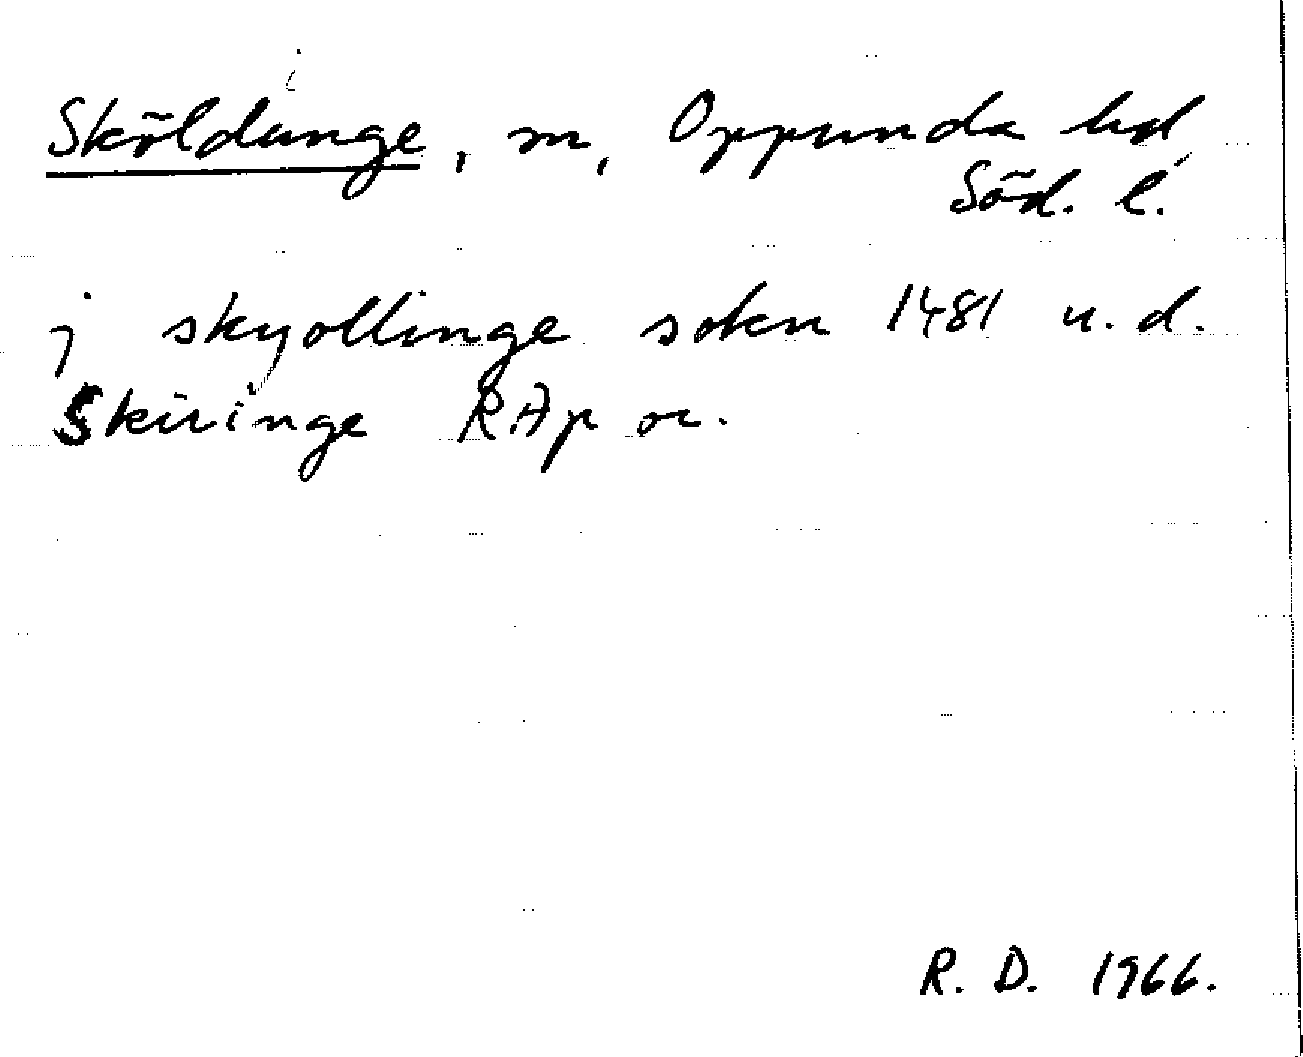 Sköldunge, sn, Oppunda hd,
Söd. l.
j skyollinge sokn 1481 u. d.
Skiringe RAp or.
R. D. 1966.